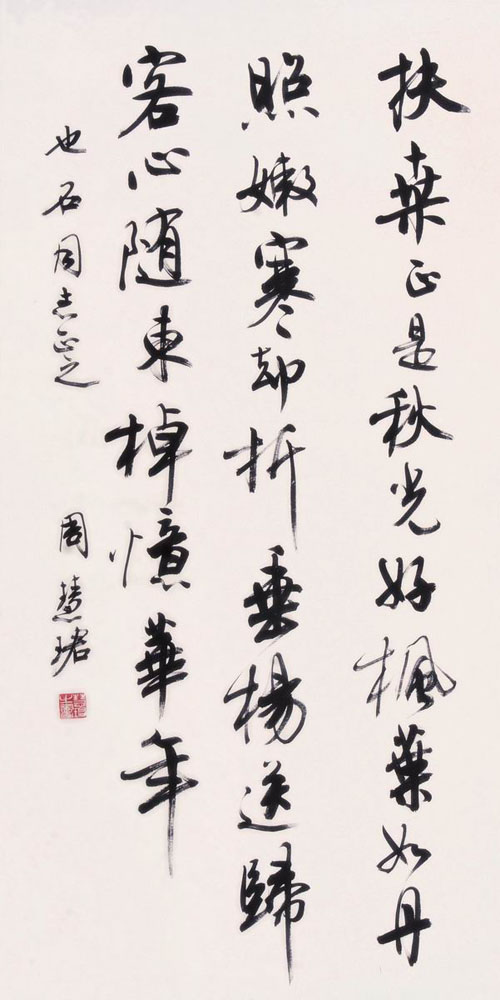 扶桑正是秋光好楓葉如丹
照嫩寒却折垂楊送歸
客心随東棹憶華年
也石同志正之 周慧珺